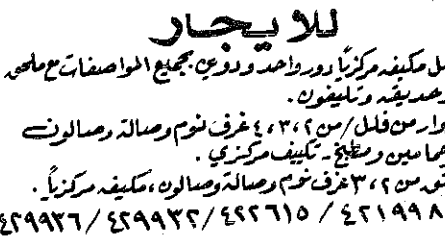 للايجار
مكيفه مركزياً دور واحد ودورين بجميع المواصفات مع ملحق
وحديقه وتليفون.
من فلل / من ٢، ٣، ٤ غرف نوم وصالة وصالون
ومطبخ - تكييف مركزي.
من ٢، ٣ غرف نوم وصالة وصالون، مكيفه مركزياً.
٤٢١٩٩٨ / ٤٢٢٦١٥ / ٤٢٩٩٣٢ / ٤٢٩٩٣٦